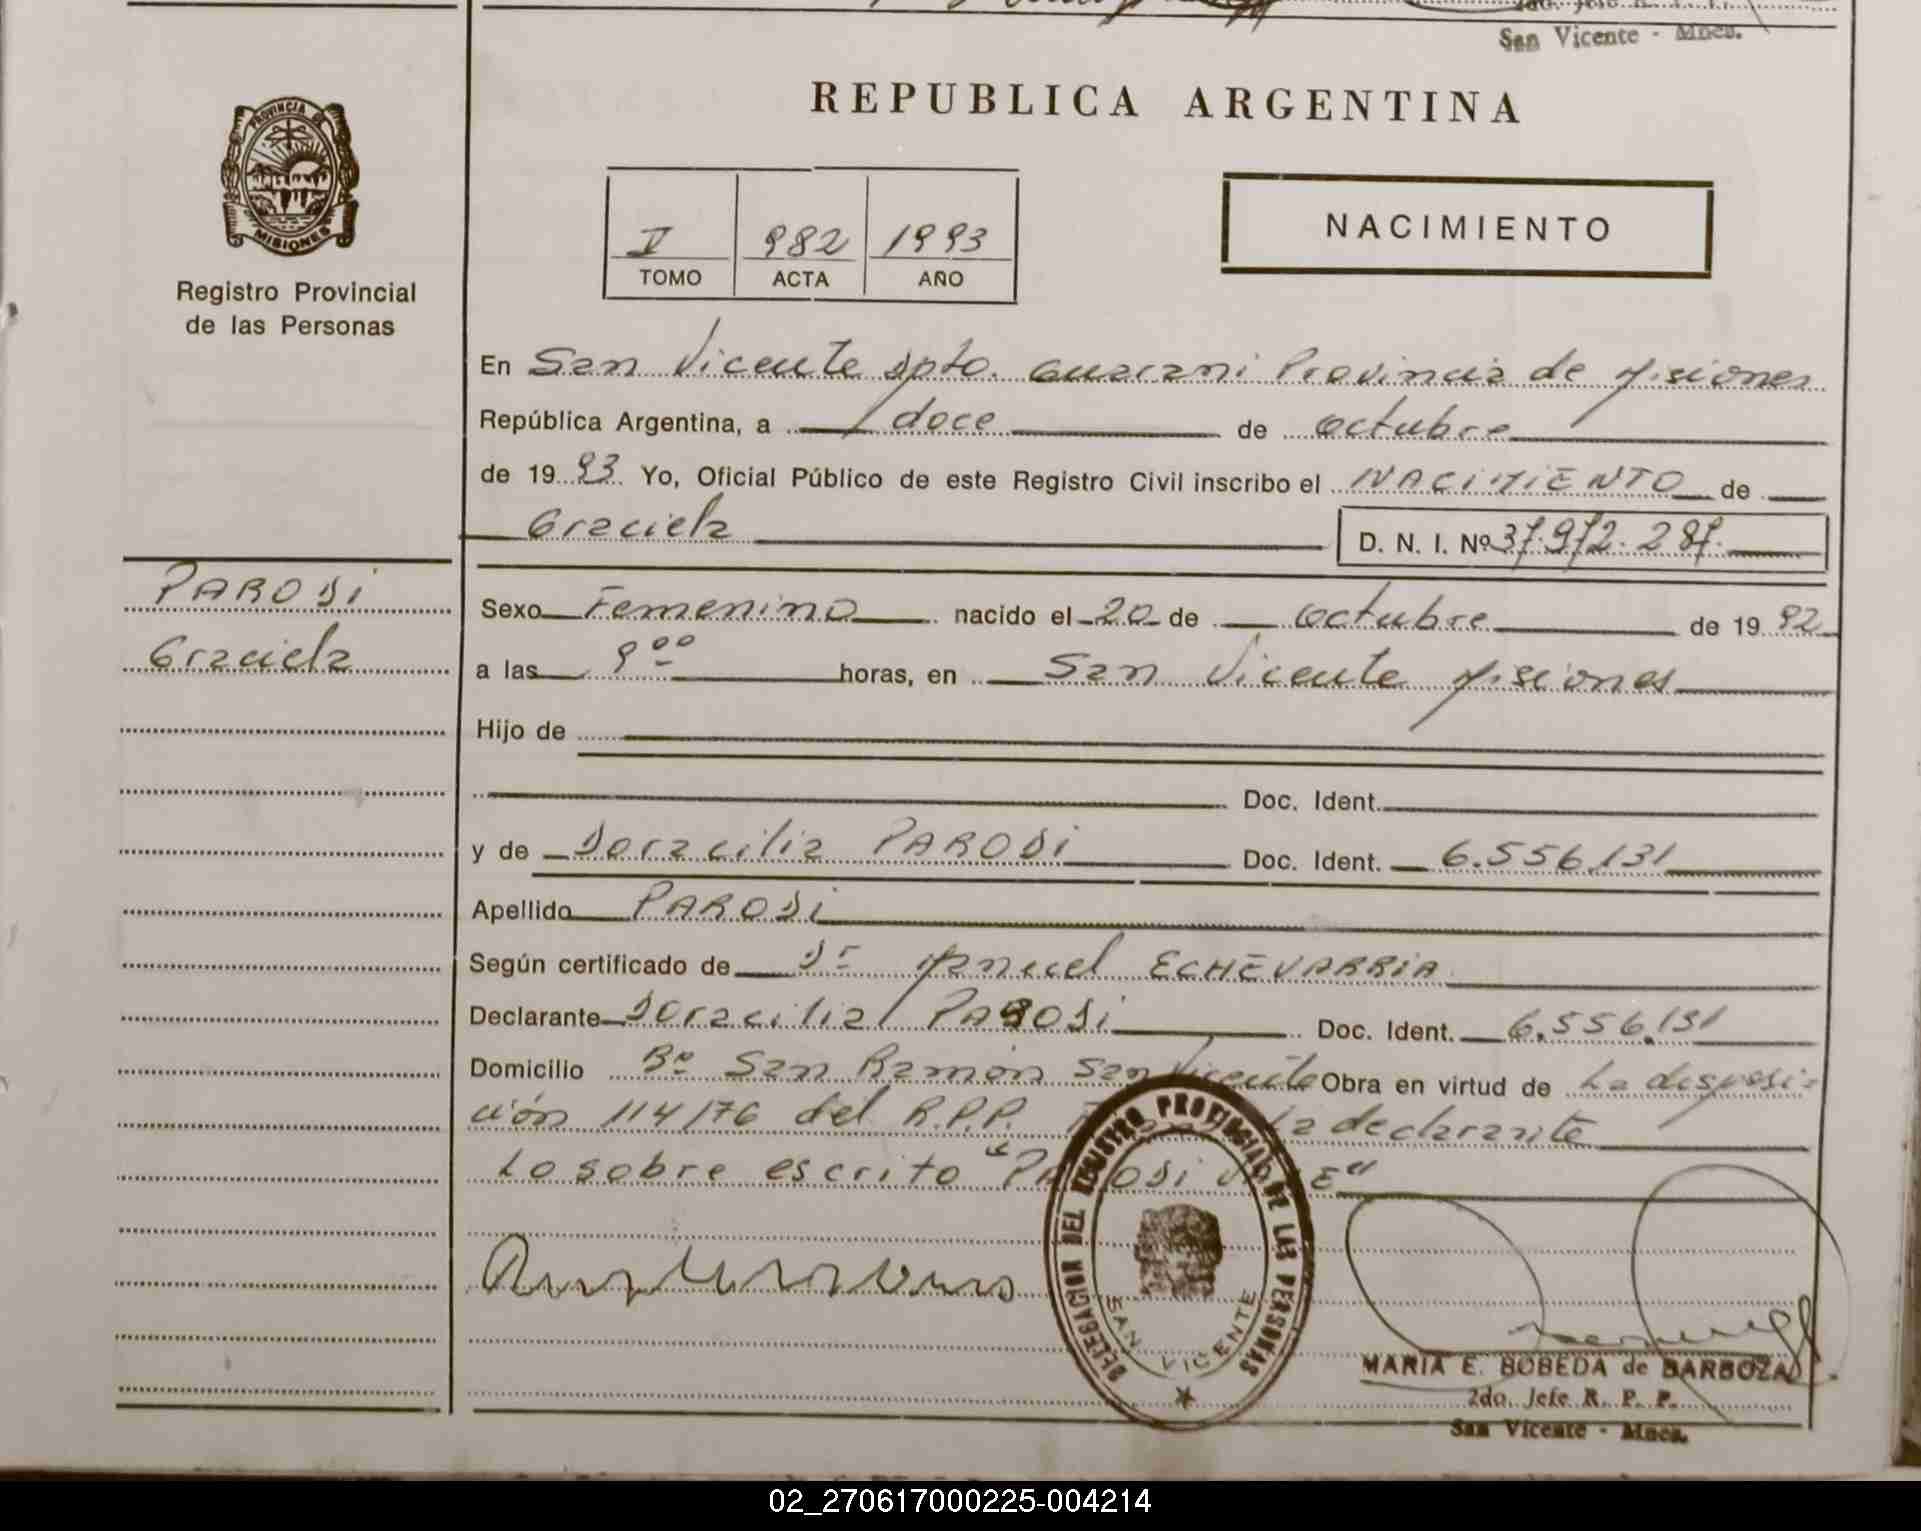 2do. Jefe R. P. P.
San Vicente - Mnes.
REPUBLICA ARGENTINA
PROVINCIA DE
MISIONES
Registro Provincial
de las Personas
V 982 1993
TOMO ACTA AÑO
NACIMIENTO
En San Vicente dpto. Guarani Provincia de Misiones
República Argentina, a doce de octubre
de 19 93 Yo, Oficial Público de este Registro Civil inscribo el NACIMIENTO de
Graciela D. N. I. Nº 37.972.287.
PARODI
Graciela
Sexo Femenino nacido el 20 de octubre de 19 92
a las 9 00 horas, en San Vicente Misiones
Hijo de
Doc. Ident.
y de Doracilia PARODI Doc. Ident. 6.556.131
Apellido PARODI
Según certificado de Dr Manuel ECHEVARRIA
Declarante Doracilia PARODI Doc. Ident. 6.556.131
Domicilio Bº San Ramón San Vicente Obra en virtud de La disposi-
ción 114/76 del R.P.P. La declarante
Lo sobre escrito "PARODI VALE"
DELEGACION DEL REGISTRO PROVINCIAL DE LAS PERSONAS
SAN VICENTE
MARIA E. BOBEDA de BARBOZA
2do. Jefe R. P. P.
San Vicente - Mnes.
02_270617000225-004214